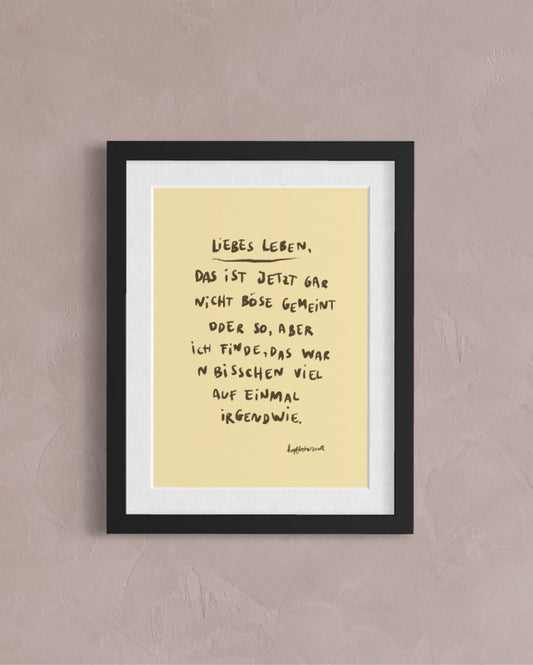 LIEBES LEBEN,
DAS IST JETZT GAR
NICHT BÖSE GEMEINT
ODER SO, ABER
ICH FINDE, DAS WAR
N BISSCHEN VIEL
AUF EINMAL
IRGENDWIE.